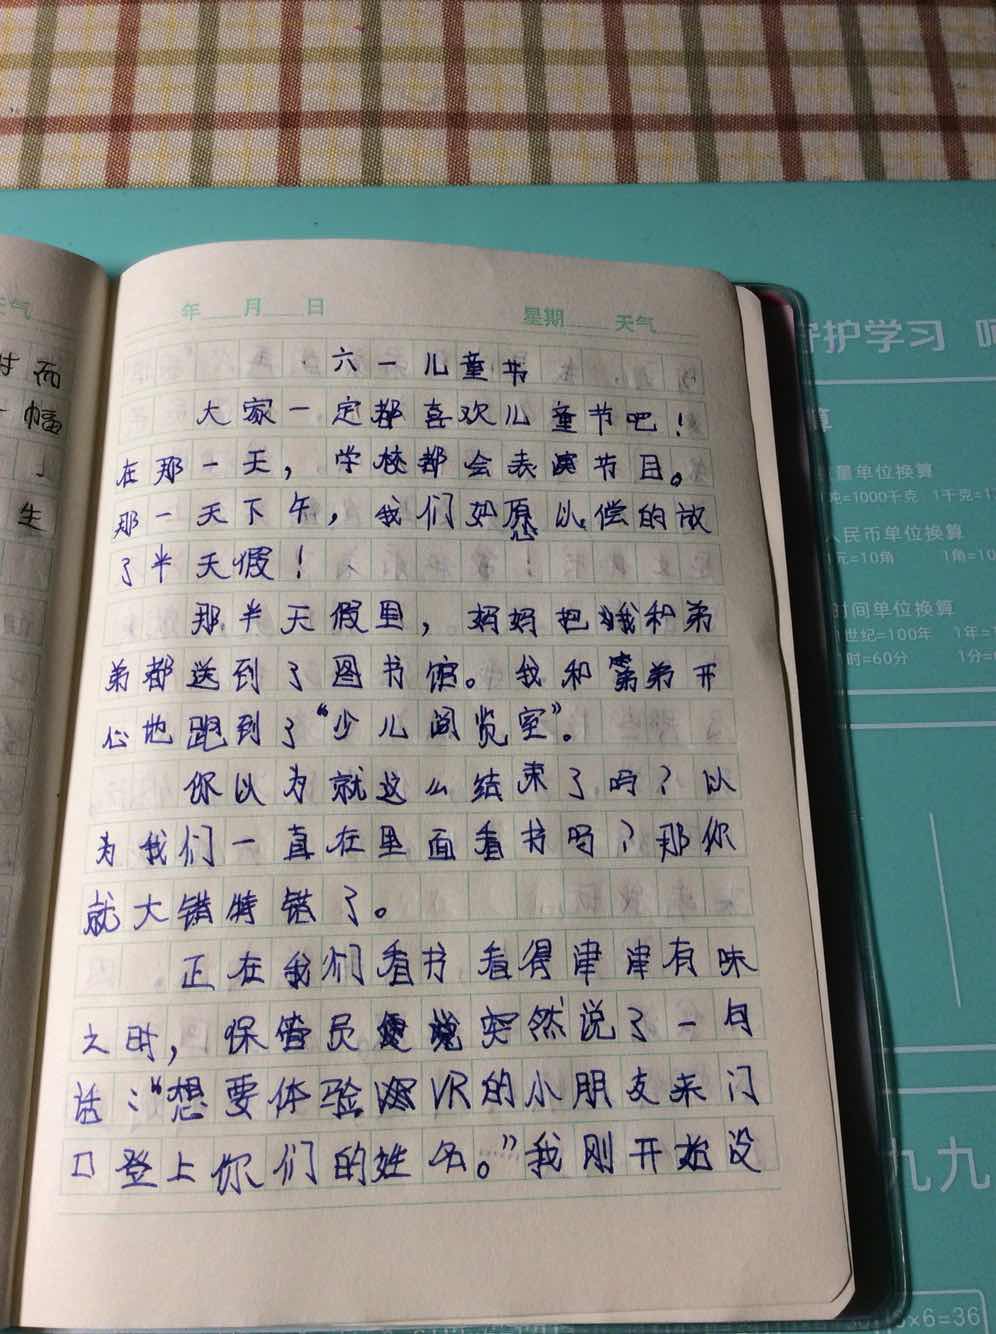 年 月 日 星期 天气
六一儿童节
大家一定都喜欢儿童节吧！
在那一天，学校都会表演节目。
那一天下午，我们如愿以偿的放
了半天假！
那半天假里，妈妈把我和弟
弟都送到了图书馆。我和弟弟开
心地跑到了“少儿阅览室”。
你以为就这么结束了吗？以
为我们一直在里面看书吗？那你
就大错特错了。
正在我们看书看得津津有味
之时，保管员突然说了一句
话：“想要体验VR的小朋友来门
口登上你们的姓名。”我刚开始没
天气
时而
一幅
生
守护学习
算
量单位换算
=1000千克
人民币单位换算
元=10角
时间单位换算
1世纪=100年
时=60分
九九
6×6=36